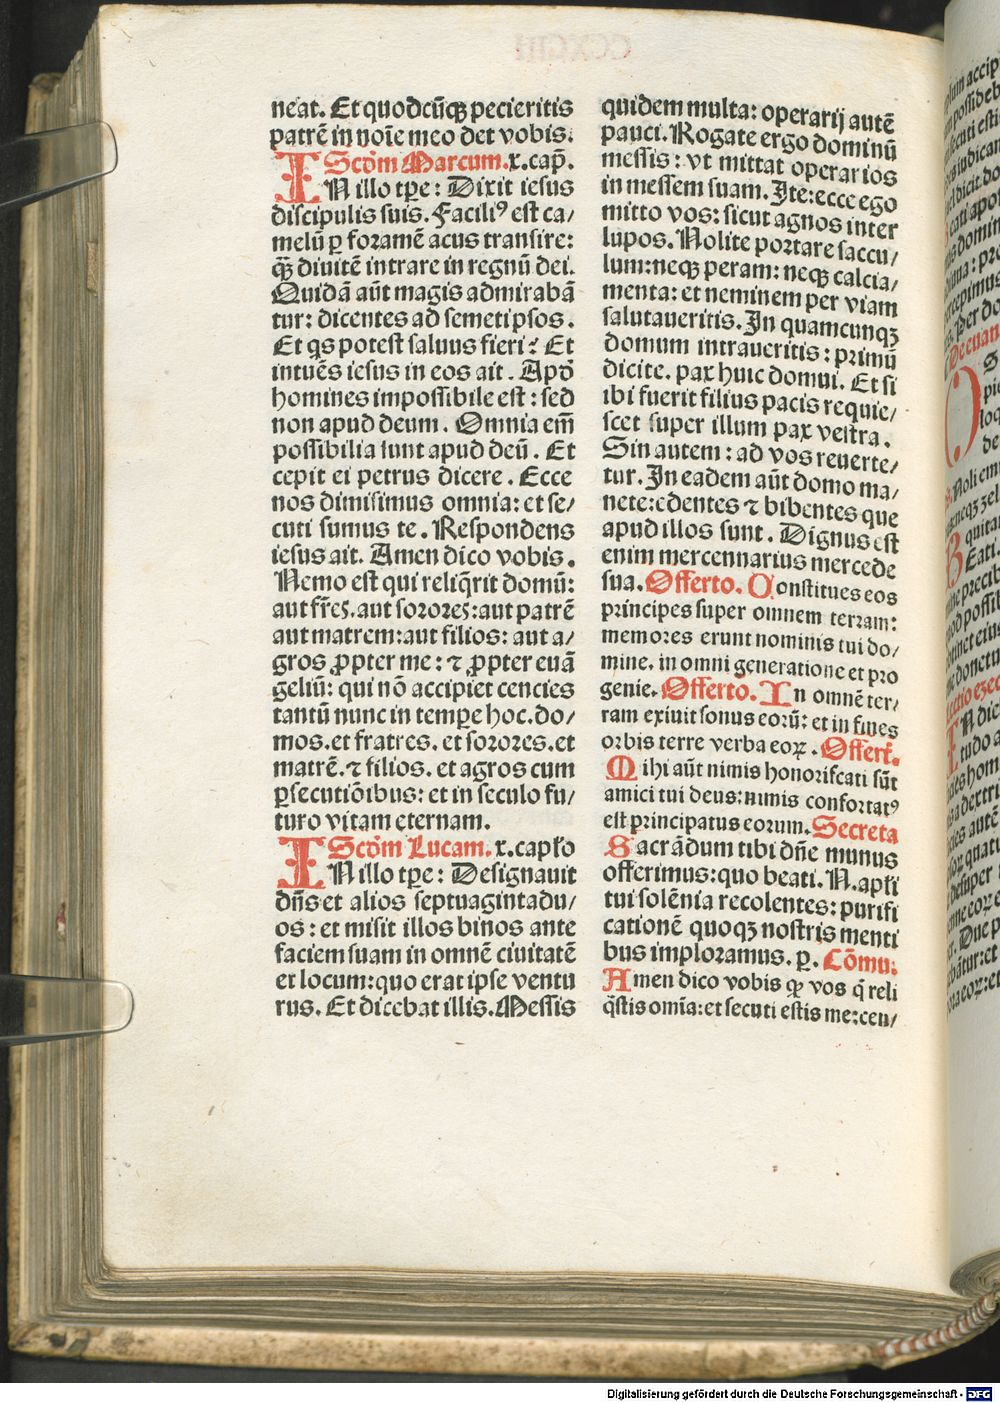 neat. Et quodcūq̃ pecieritis
patrē in noīe meo det vobis.
Scd̃m Marcum. x. cap̃.
IN illo tp̄e: Dixit iesus
discipulis suis. Faciliꝰ est ca/
melū ꝑ foramē acus transire:
q̃ȝ diuitē intrare in regnū dei.
Quidā aūt magis admirabā
tur: dicentes ad semetipsos.
Et q̄s potest saluus fieri? Et
intuēs iesus in eos ait. Apd̃
homines impossibile est: sed
non apud deum. Omnia em̄
possibilia sunt apud deū. Et
cepit ei petrus dicere. Ecce
nos dimisimus omnia: et se/
cuti sumus te. Respondens
iesus ait. Amen dico vobis.
Nemo est qui reliq̄rit domū:
aut fr̄es. aut sorores: aut patrē
aut matrem: aut filios: aut a/
gros ꝓpter me: ⁊ ꝓpter euā
geliū: qui nō accipiet cencies
tantū nunc in tempe hoc. do/
mos. et fratres. et sorores. et
matrē. ⁊ filios. et agros cum
ꝑsecutiōibus: et in seculo fu/
turo vitam eternam.
Scd̃m Lucam. x. capl̃o
IN illo tp̄e: Designauit
dn̄s et alios septuagintadu/
os: et misit illos binos ante
faciem suam in omnē ciuitatē
et locum: quo erat ipse ventu
rus. Et dicebat illis. Messis
quidem multa: operarij autē
pauci. Rogate ergo dominū
messis: vt mittat operarios
in messem suam. Ite: ecce ego
mitto vos: sicut agnos inter
lupos. Nolite portare saccu/
lum: neqȝ peram: neqȝ calcia/
menta: et neminem per viam
salutaueritis. In quamcunqȝ
domum intraueritis: primū
dicite. pax huic domui. Et si
ibi fuerit filius pacis requie/
scet super illum pax vestra.
Sin autem: ad vos reuerte/
tur. In eadem aūt domo ma/
nete: edentes ⁊ bibentes que
apud illos sunt. Dignus est
enim mercennarius mercede
sua. Offerto. Constitues eos
principes super omnem terram:
memores erunt nominis tui do/
mine. in omni generatione et pro
genie. Offerto. In omnē ter/
ram exiuit sonus eorū: et in fines
orbis terre verba eoꝝ. Offert̃.
Mihi aūt nimis honorificati sūt
amici tui deus: nimis confortatꝰ
est principatus eorum. Secreta
Sacrādum tibi dn̄e munus
offerimus: quo beati. N. apl̃i
tui solēnia recolentes: purifi
cationē quoqȝ nostris menti
bus imploramus. ꝑ. Cōmu.
Amen dico vobis ꝙ vos q̄ reli
q̄stis omīa: et secuti estis me: cen/
Digitalisierung gefördert durch die Deutsche Forschungsgemeinschaft - DFG